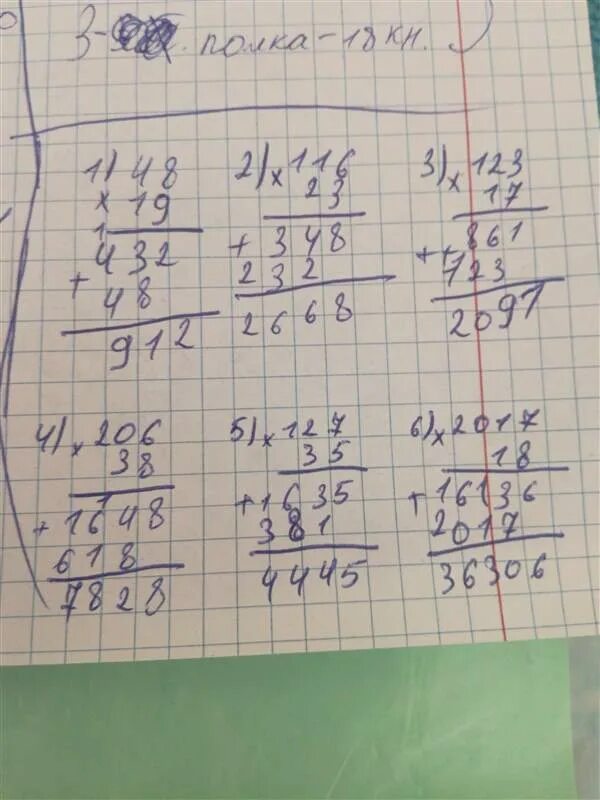 3- . полка-18 кн.
1) 48
x 19
1
432
+
48
912
2) x 116
23
+ 348
232
2668
3) x 123
17
861
+ +
123
2091
4) x 206
38
1
+ 1648
618
7828
5) x 127
35
+ 1635
381
4445
6) x 2017
18
+ 16136
2017
36306